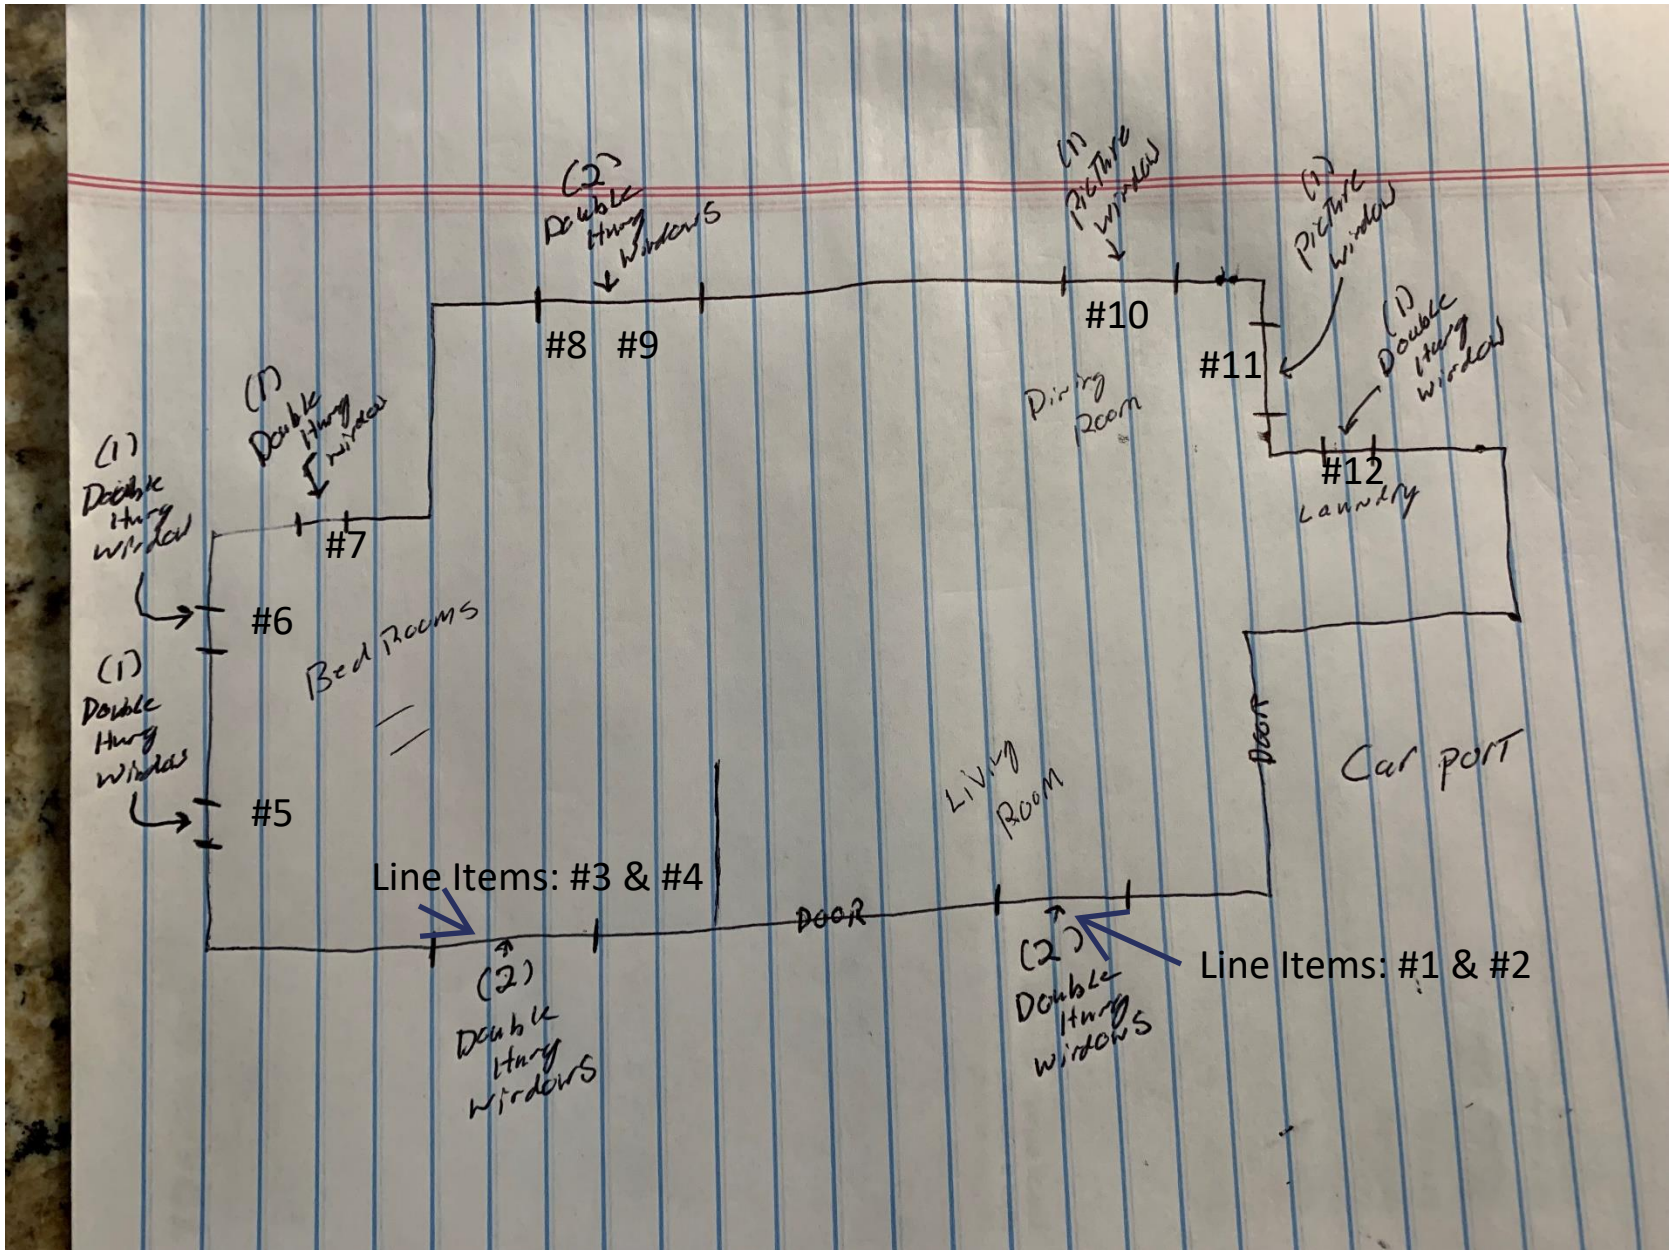 (2)
Double
Hung
Windows
(1)
Picture
Window
(1)
Picture
Window
(1)
Double
Hung
Window
#8 #9
#10
#11
#12
Dining
Room
Laundry
(1)
Double
Hung
Window
#7
(1)
Double
Hung
Window
#6
Bed Rooms
(1)
Double
Hung
Window
#5
Living
Room
DOOR
Car port
Line Items: #3 & #4
DOOR
(2)
Double
Hung
Windows
(2)
Double
Hung
Windows
Line Items: #1 & #2